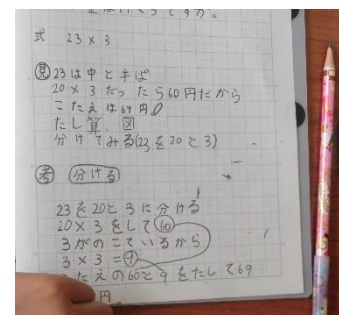 式 23×3
見 23は中と半ぱ
20×3だったら60円だから
こたえは69円
たし算、図
分けてみる(23を20と3)
考 分ける
23を20と3に分ける
20×3をして60
3がのこているから
3×3=9
たえの60と9をたして69
円